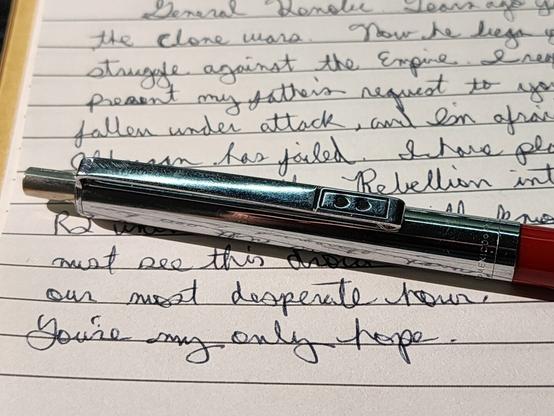 General Kenobi Years ago y
the clone wars. Now he begs y
struggle against the Empire. I re
present my father's request to yo
fallen under attack, and I'm afrai
has failed. I have pla
Rebellion int
R2
must see this droid
our most desperate hour.
You're my only hope.